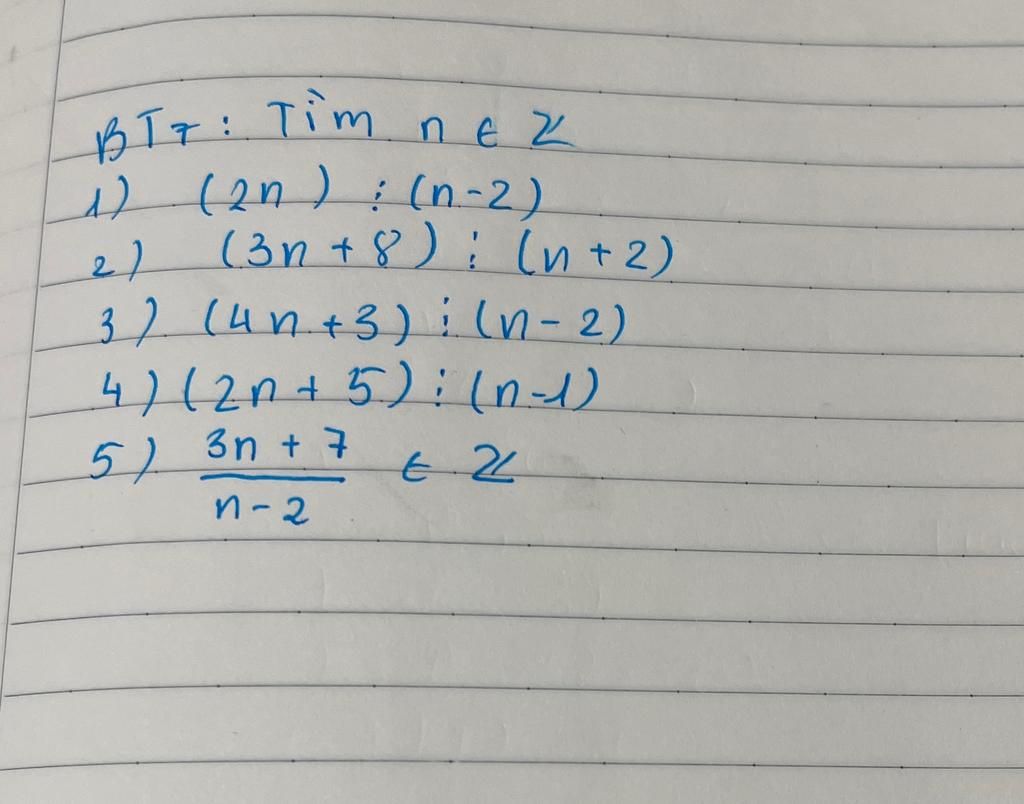 BT7: Tìm n ∈ ℤ
1) (2n) ⋮ (n-2)
2) (3n + 8) ⋮ (n + 2)
3) (4n + 3) ⋮ (n - 2)
4) (2n + 5) ⋮ (n-1)
5) \frac{3n + 7}{n - 2} ∈ ℤ